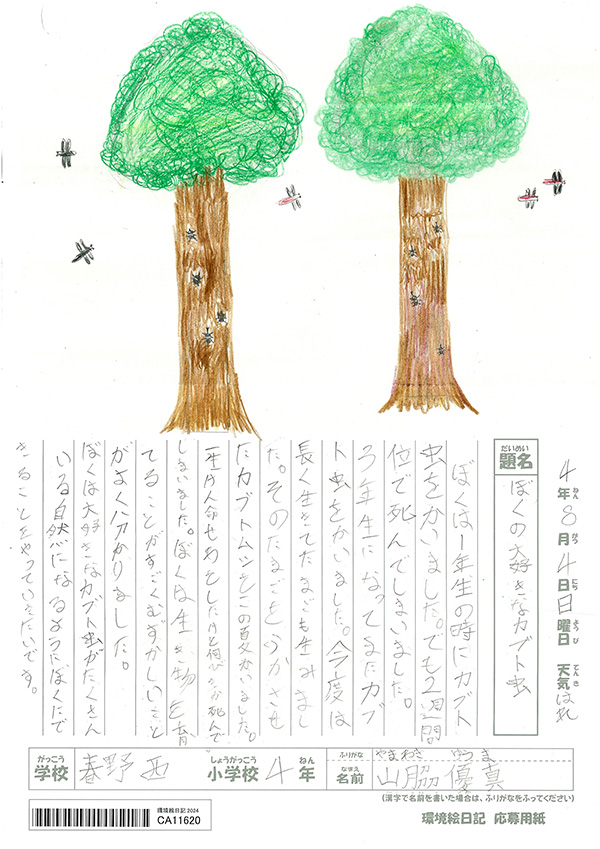 4年8月4日日曜日 天気はれ
ねん がつ にち ようび てんき
題名 ぼくの大好きなカブト虫
だいめい
ぼくは1年生の時にカブト
虫をかいました。でも2週間
位で死んでしまいました。
3年生になってまたカブ
ト虫をかいました。今度は
長く生きてたまごも生みまし
た。そのたまごをうかさせ
たカブトムシをこの夏かいました。
一生けん命せわをしたけど何びきか死んで
しまいました。ぼくは生き物を育
てることがすごくむずかしいこと
がよく分かりました。
ぼくは大好きなカブト虫がたくさん
いる自然になるようにぼくにで
きることをやっていきたいです。
がっこう しょうがっこう ねん ふりがな やまわき ゆうま
学校 春野西 小学校 4年 なまえ 名前 山脇優真
(漢字で名前を書いた場合は、ふりがなをふってください)
環境絵日記 2024
CA11620
環境絵日記 応募用紙